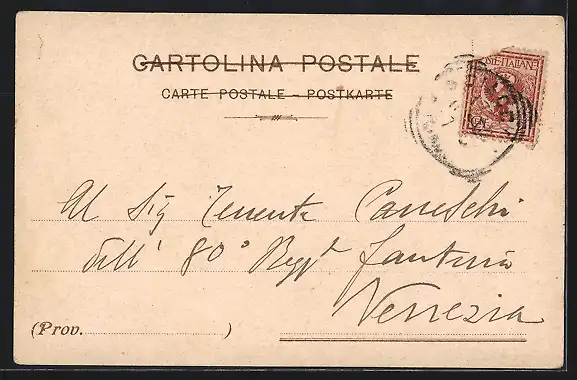 CARTOLINA POSTALE
CARTE POSTALE – POSTKARTE
POSTE ITALIANE
Al Sig Tenente Canneschi
dell' 80° Regg.to fanteria
Venezia
(Prov. )